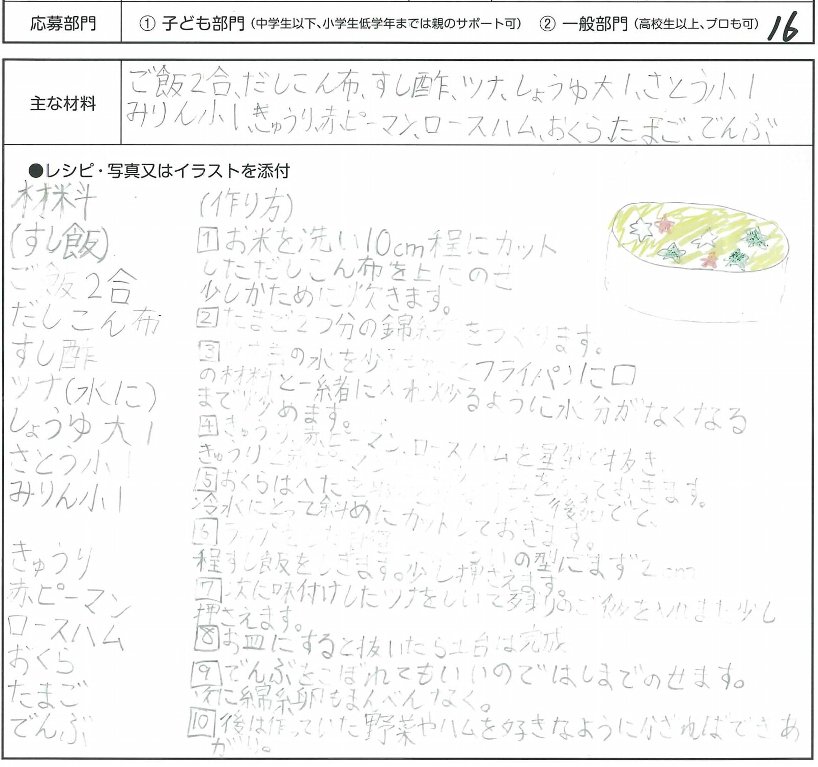 応募部門 ① 子ども部門（中学生以下、小学生低学年までは親のサポート可） ② 一般部門（高校生以上、プロも可） 16
主な材料
ご飯2合、だしこん布、すし酢、ツナ、しょうゆ大1、さとう小1
みりん小1、きゅうり、赤ピーマン、ロースハム、おくら、たまご、でんぶ
●レシピ・写真又はイラストを添付
材料
(すし飯)
ご飯2合
だしこん布
すし酢
ツナ(水に)
しょうゆ大1
さとう小1
みりん小1
きゅうり
赤ピーマン
ロースハム
おくら
たまご
でんぶ
(作り方)
1 お米を洗い10cm程にカット
しただしこん布を上にのせ
少しかために炊きます。
2 たまご2つ分の錦糸 をつくります。
3 の水を少 フライパンに口
の材料と一緒に入れ炒るように水分がなくなる
まで炒めます。
4 きゅうり、赤ピーマン、ロースハムを星型で抜き、
きゅうり おきます。
5 おくらはへた 後
冷水にとって斜めにカットしておきます。
6 ラップ の型にまず2cm
程すし飯をしきます。少し押さえます。
7 次に味付けしたツナをしいて のご飯を入れまた少し
押さえます。
8 お皿にすると抜いたら土台は完成
9 でんぶをこぼれてもいいのではしまでのせます。
次に綿糸卵もまんべんなく。
10 後は作っていた野菜やハムを好きなようにかざればできあ
がり。